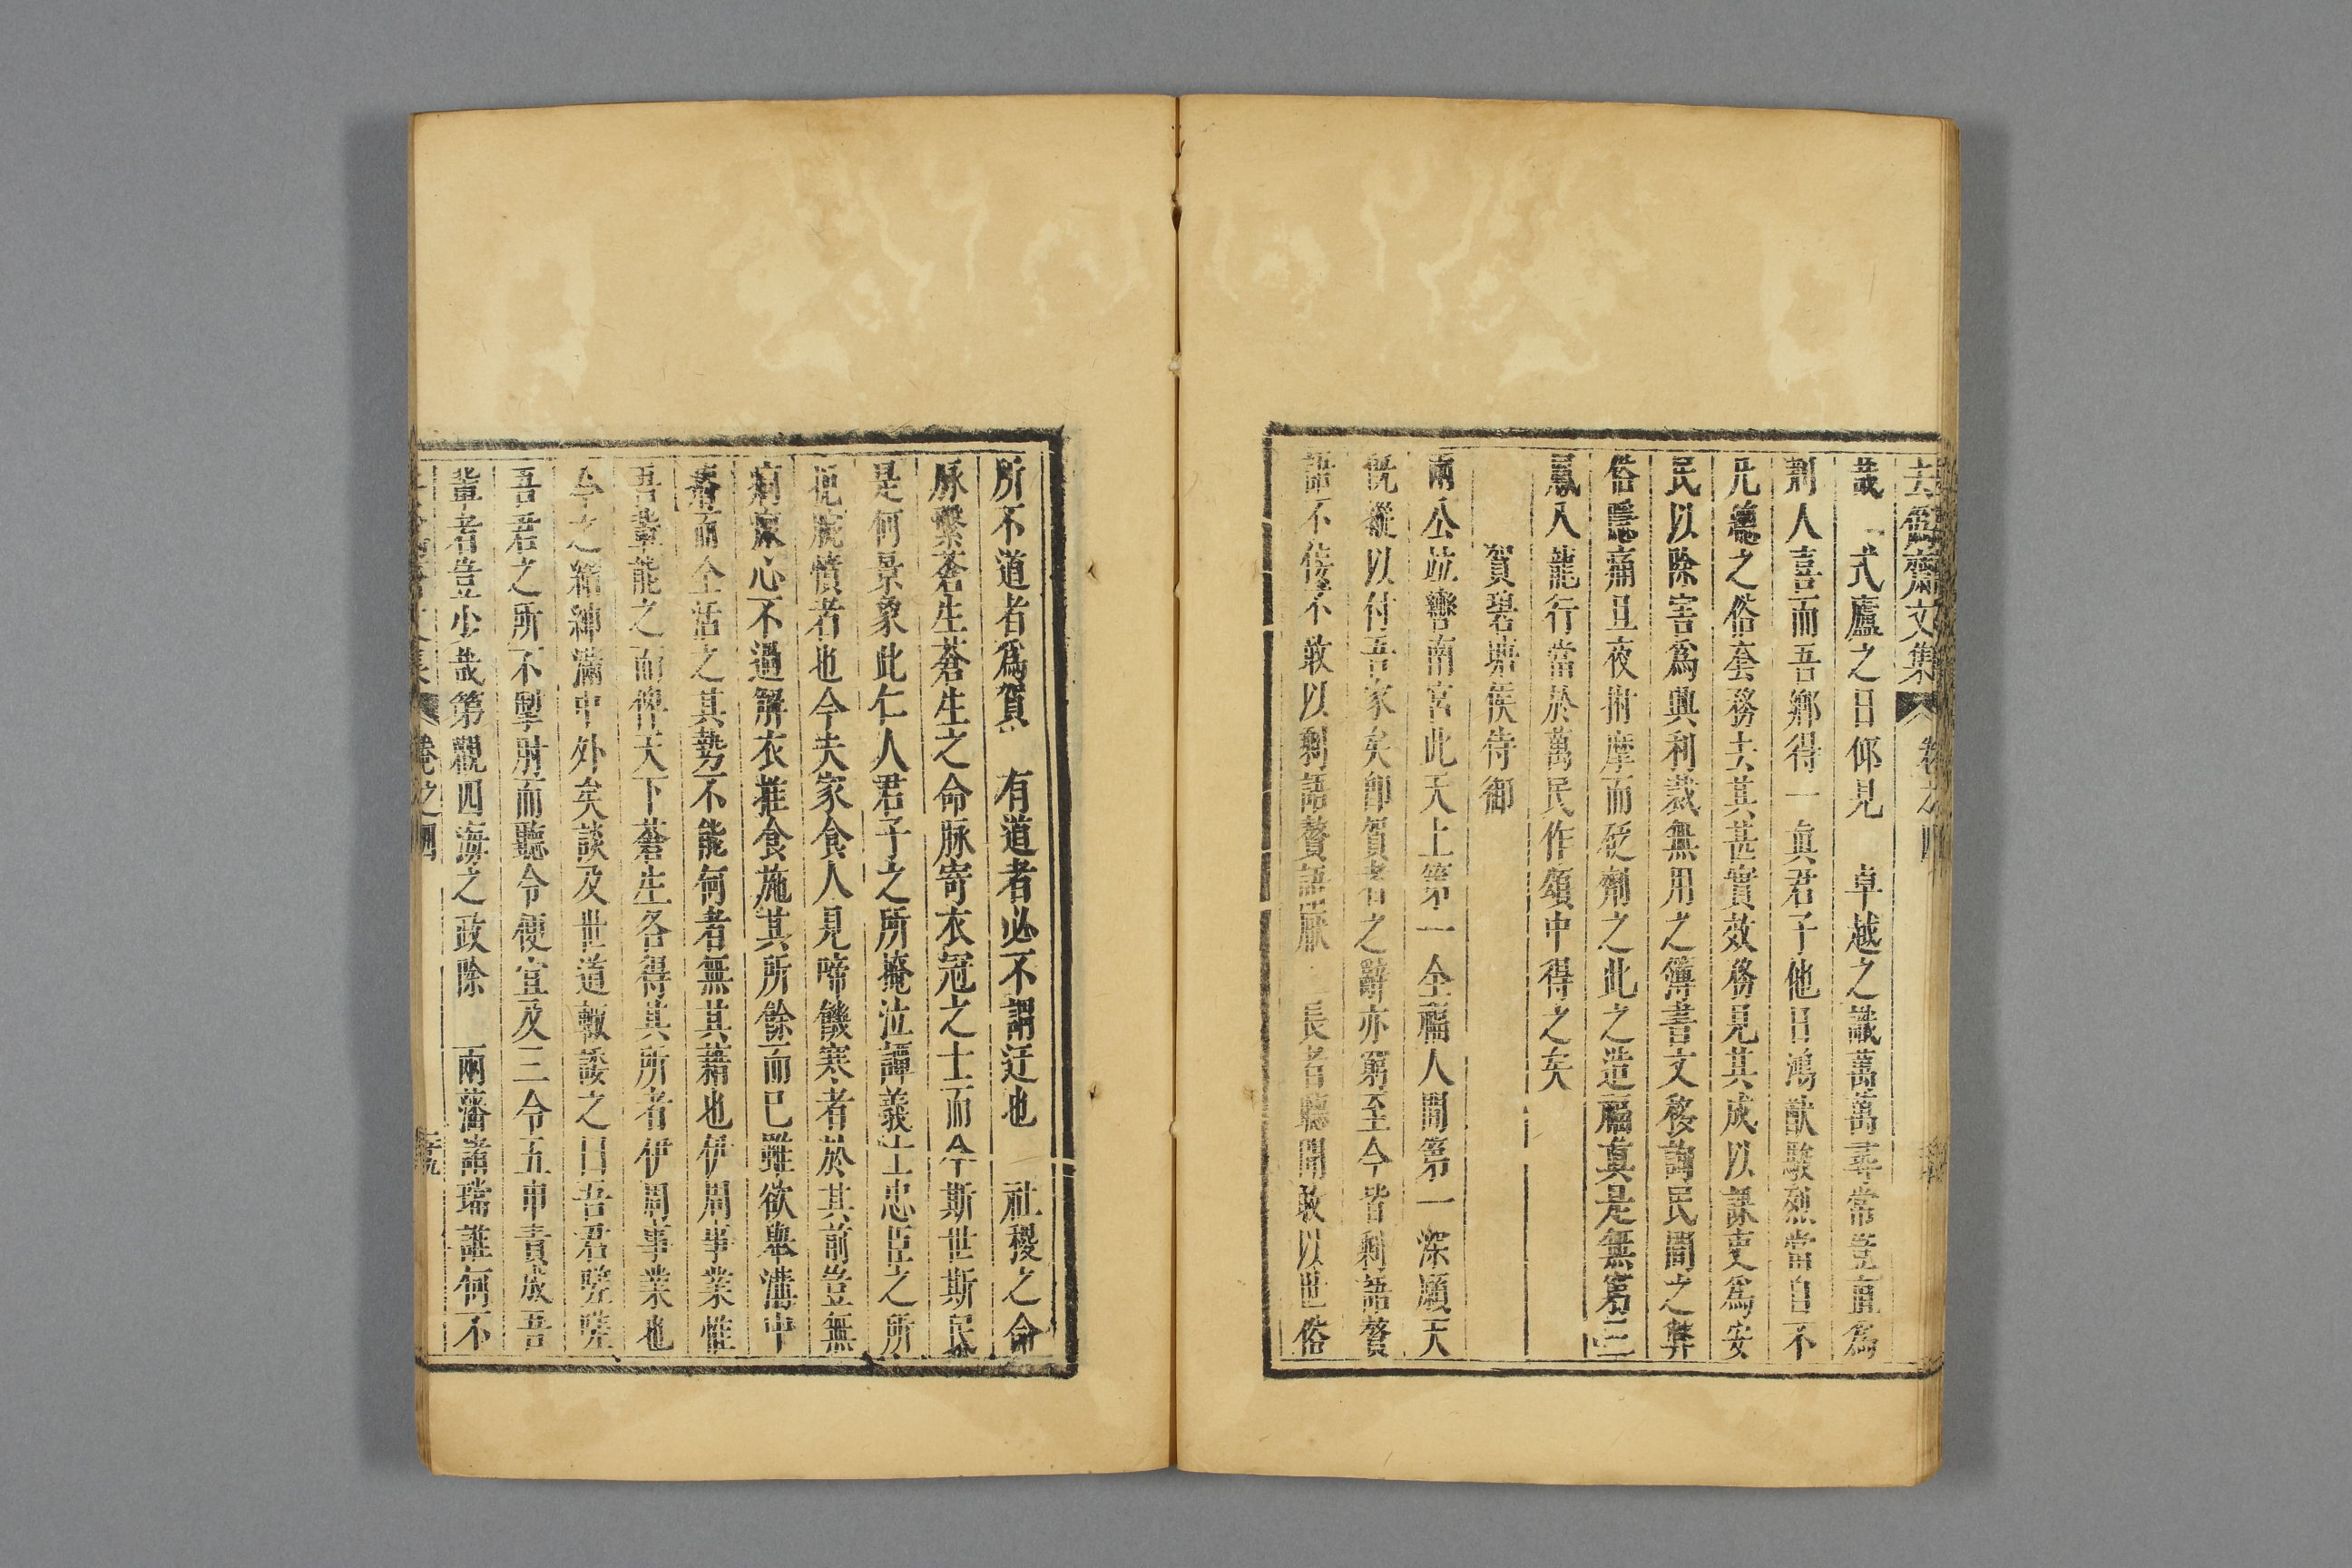 去僞齋文集 卷之四
哉 式廬之日仰見 卓越之識萬萬尋常豈直爲
荆人喜而吾鄉得一眞君子他日鴻猷駿烈當自不
凡德之俗套務去其甚實效務見其成以課吏爲安
民以除害爲興利裁無用之簿書文移詢民間之弊
俗隱痛旦夜拊摩而砭劑之此之造福眞是無第二
鳳人龍行當於萬民作頌中得之矣
賀碧塘侯侍御
兩公竝轡南宮此天上第一全福人間第一深願天
既縱以付吾家矣卽賀者之辭亦窮至今皆剩語贅
語不佞不敢以剩語贅語厭 長者聽聞敢以世俗
所不道者爲賀 有道者必不謂迂也 社稷之命
脉繫蒼生蒼生之命脉寄衣冠之士而今斯世斯民
是何景象此仁人君子之所掩泣譚義士忠臣之所
扼腕憤者也今夫家食人見啼饑寒者於其前豈無
痌瘝心不過解衣推食施其所餘而已雖欲舉溝中
瘠而全活之其勢不能何者無其藉也伊周事業惟
吾輩能之而俾天下蒼生各得其所者伊周事業也
今之縉紳滿中外矣談及世道輒諉之曰吾君嗟嗟
吾君之所不掣肘而聽令便宜及三令五申責成吾
輩者豈少哉第觀四海之政除 兩藩諸璫誰何不
卷之四